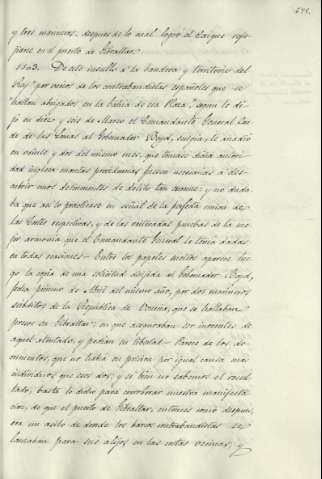 y tres marineros, despues de lo cual logró el buque refu-
giarse en el puerto de Gibraltar.
De este insulto á la bandera y territorio del
Rey "por varios de los contrabandistas españoles que se
hallan abrigados en la bahia de esa Plaza," segun le di-
jo en diez y seis de Marzo el Comandante General
de de las Lineas al Gobernador Boyd,
en veinte y dos del mismo mes, que tomase dicha autori-
dad inglesa cuantas providencias fuesen necesarias á des-
cubrir unos delincuentes de delito tan enorme: y no duda-
ba que asi lo practicase en señal de la perfecta union de
las Cortes respectivas, y de las reiteradas pruebas de la me-
jor armonia que el Comandante General le tenia dadas
en todas ocasiones. Entre los papeles
go la copia de una solicitud dirijida al Gobernador Boyd,
fecha primero de Abril del mismo año, por dos marineros
subditos de la Republica de que se hallaban
presos en Gibraltar: en que aseguraban ser inocentes de
aquel atentado, y pedian su libertad. Parece de los do-
cumentos, que no habia en prision por igual causa mas
individuos que esos dos; y si bien no sabemos el resul-
tado, basta lo dicho para corroborar nuestra manifesta-
cion, de que el puerto de Gibraltar, entonces como despues,
era un asilo de donde los barcos contrabandistas se
lanzaban para sus alijos en las costas vecinas; y